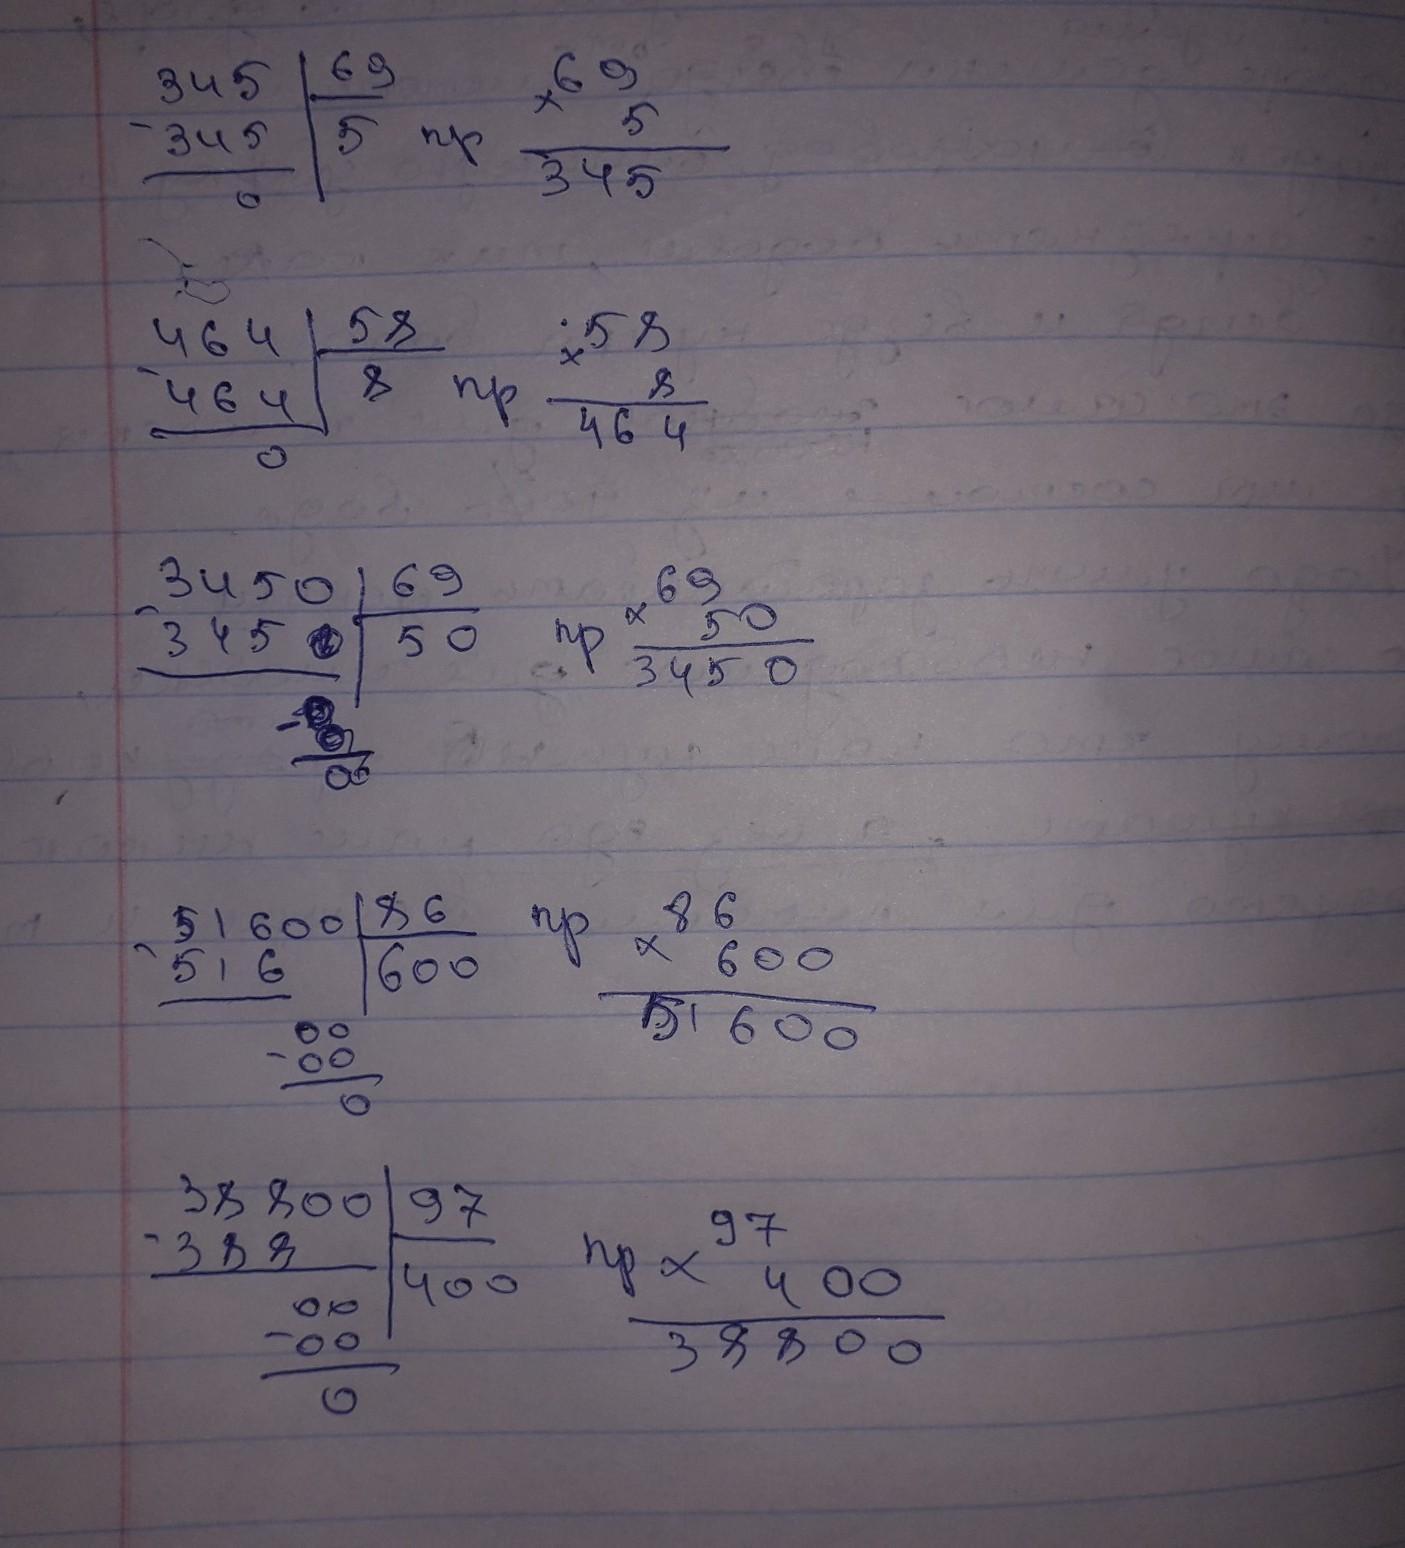 345 69 69
-345 5 пр × 5
0 345
464 58 58
-464 8 пр × 8
0 464
3450 69 69
-3450 50 пр × 50
3450
-0
0
00
51600 86 пр 86
-516 600 × 600
00 51600
-00
0
38800 97 97
-388 400 пр × 400
00 38800
-00
0